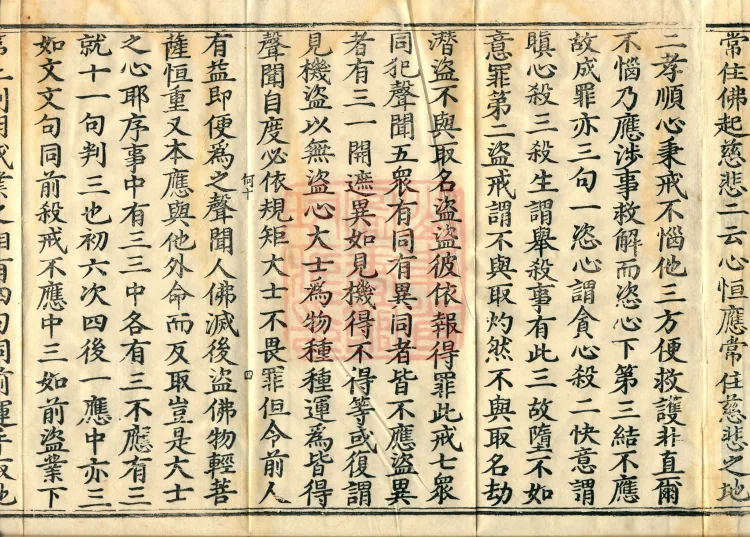 常住佛起慈悲二云心恒應常住慈悲之地
二孝順心秉戒不惱他三方便救護非直爾
不惱乃應涉事救解而恣心下第三結不應
故成罪亦三句一恣心謂貪心殺二快意謂
瞋心殺三殺生謂舉殺事有此三故墮不如
意罪第二盜戒謂不與取灼然不與取名劫
潛盜不與取名盜盜彼依報得罪此戒七衆
同犯聲聞五衆有同有異同者皆不應盜異
者有三一開遮異如見機得不得等或復謂
見機盜以無盜心大士為物種種運為皆得
聲聞自度必依規矩大士不畏罪但令前人
何十
四
有益即便為之聲聞人佛滅後盜佛物輕菩
薩恒重又本應與他外命而反取豈是大士
之心耶序事中有三三中各有三不應有三
就十一句判三也初六次四後一應中亦三
如文文句同前殺戒不應中三如前盜業下